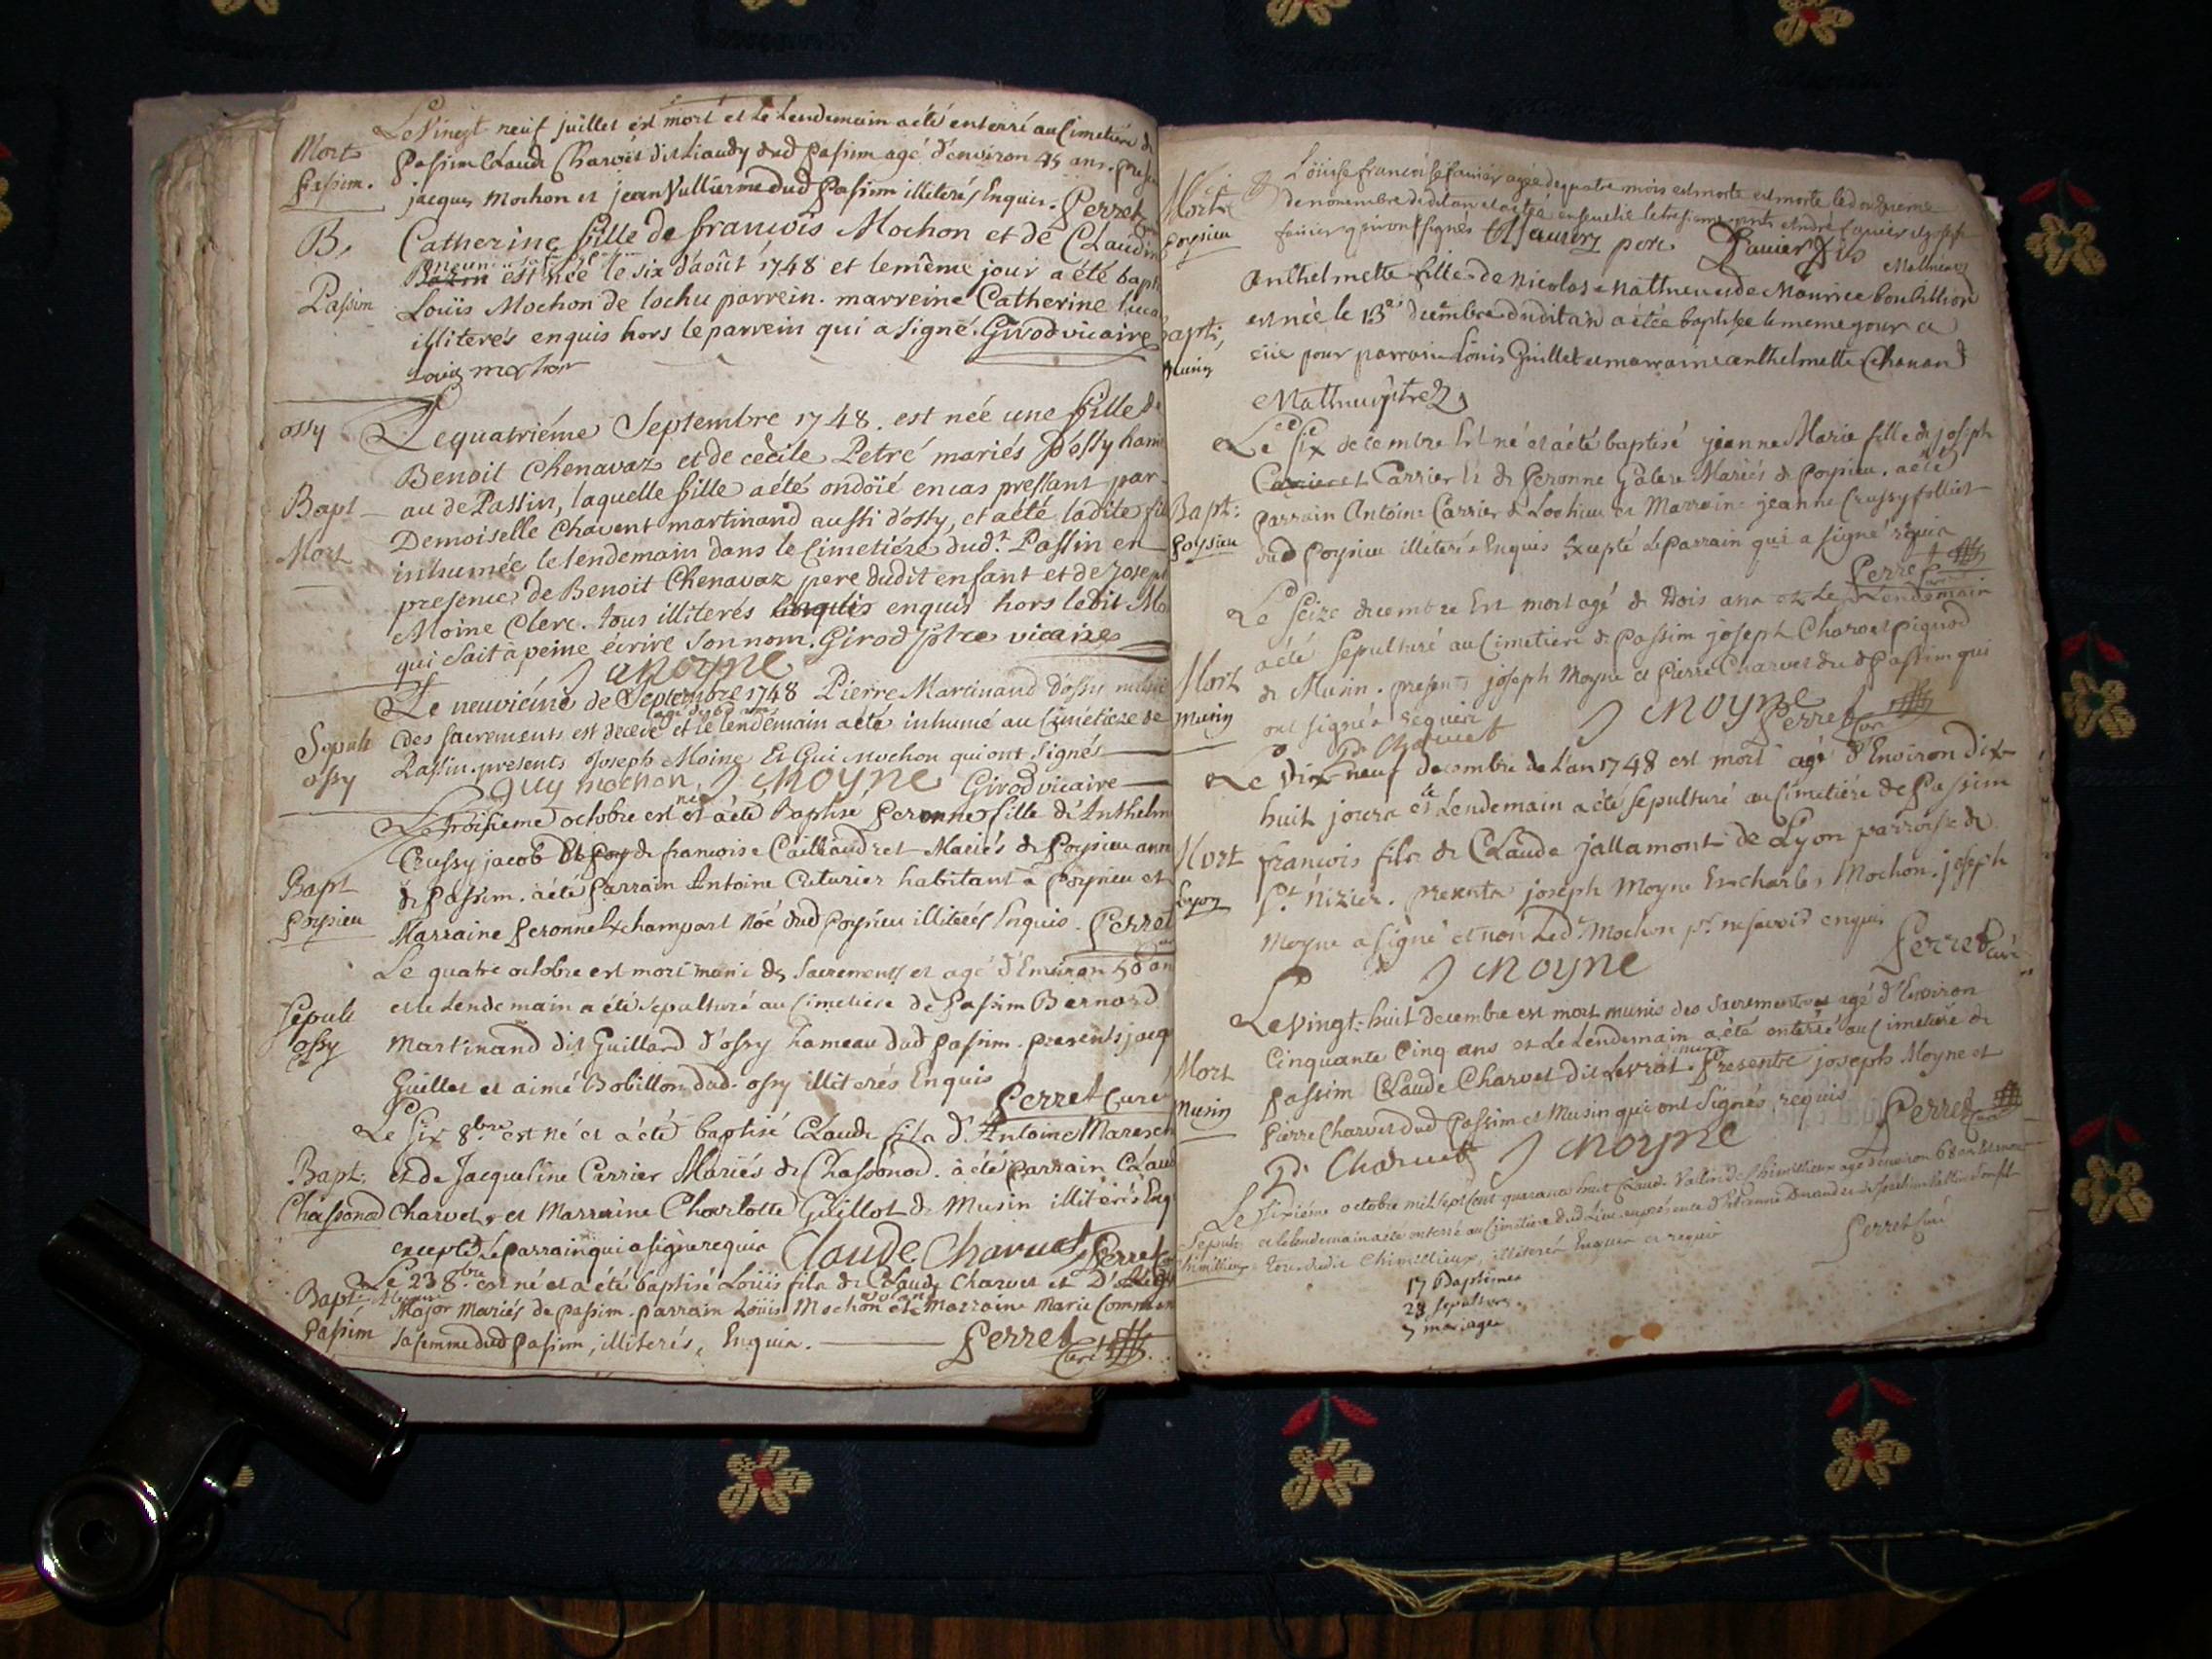 Le Vingt neuf juillet est mort et le Lendemain a été enterré au Cimetiére d
Mort
Passim Claude Charvet dit Liaudy dud Passim agé d'environ 45 ans. presen
Passim.
jacques Mochon et jean Vullierme dud Passim illiterés Enquis. Perret
B.
Catherine fille de francois Mochon et de Claudin
est née le six d'août 1748 et le même jour a été bapt
Passim
Louis Mochon de lochu parrein. marreine Catherine
illiterés enquis hors le parrein qui a signé. Girod vicaire
Louis mochon
ossy
Le quatriéme Septembre 1748. est née une fille de
Benoit Chenavaz et de cécile Petré mariés d'ossy ham
Bapt
au de Passin, laquelle fille a été ondoïé en cas pressant par
Demoiselle Chavent martinand aussi d'ossy, et a été ladite fil
Mort
inhumée le lendemain dans le Cimetiére dud.t Passin en
presence de Benoit Chenavaz pere dudit enfant et de Josep
Moine Clerc. tous illiterés enquis hors ledit Mo
qui sait à peine écrire son nom. Girod ptre vicaire
J moyne
Le neuviéme de Septembre 1748 Pierre Martinand d'ossy
des sacrements est decedé et le lendemain a été inhumé au Cimétiere de
Sepult
Passin. presents Joseph Moine Et Gui mochon qui ont signés
ossy
guy mochon, J moyne Girod vicaire
Le troisieme octobre est née et a été Baptisé peronne fille de Anthelm
Crussy jacob de francoise Caillaudret Mariés de Poysieu
Bapt
de Passim. a été parrain Antoine Cuturier habitant a Poysieu et
poysieu
Marraine peronne champart dud Poysieu illiterés Enquis. Perret
Le quatre octobre est mort muni des Sacrements et agé d'Environ 50 an
Sepult
et le Lendemain a été sepulturé au Cimetiere de Passim Bernard
ossy
Martinand dit Guillard d'ossy hameau dud passim. presents jacq
Guillet et aimé Bobillon dud. ossy illiterés Enquis
Perret Curé
Le six 8.bre est né et a été baptisé Claude fils d'Antoine Maresch
Bapt:
et de Jacqueline Carrier Mariés de Chassonod. a été parrain Claud
Chassonod
Charvet, et Marraine Charlotte Guillot de Musin illitérés Enq
excepté le parrain qui a signé requis Claude Charvet Perret
Le 23 8bre est né et a été baptisé Louis fils de Claude Charvet et D'
Bapt
Major Mariés de passim. parrain Louis Mochon et Marraine Marie
passim
sa femme dud Passim, illiterés, Enquis. Perret
Curé
Louise francoise favier agée de quatre mois est morte est morte le douzieme
Morte
de novembre dudit an et a été ensevelie le
Poysieu
favier qui ont signés favier pere favier fils
Anthelmette fille de nicolas mathieu et de Maurice bobillion
est née le 13 decembre dudit an a étée baptisée le meme jour a
Bapt;
eüe pour parrain Louis Guillet et marraine anthelmette Chavan
Musin
Mathieu ptre
Le Six decembre Est né et a été baptisé jeanne Marie fille de joseph
Carrier et de peronne Galere Mariés de poysieu. a été
Bapt:
parrain Antoine Carrier de Lochieu et Marraine jeanne Crussy folliet
Poysieu
dud Poysieu illiterés Enquis Excepté le parrain qui a signé requis
Perret
Curé
Le seize decembre Est mort agé de trois ans et Le Lendemain
a été sepulturé au Cimetiere de Passim joseph Charvet pignod
Mort
de Musin. presents joseph Moyne et Pierre Charvet dud Passim qui
Musin
ont signés requis J moyne
P. Charvet Perret
Curé
Le Dix-neuf decembre de L'an 1748 est mort agé d'Environ dix
huit jours et le Lendemain a été sepulturé au Cimetiére de Passim
Mort
francois fils de Claude jallamont de Lyon parroisse de
Lyon
S.t Nizier. presents joseph Moyne Et charles Mochon. joseph
Moyne a signé et non Led. Mochon p.r ne savoir enquis
J moyne Perret Curé
Le vingt-huit decembre est mort munis des Sacrements et agé d'Environ
Cinquante Cinq ans et Le Lendemain a été enterré au Cimetiere de
Mort
Passim Claude Charvet dit Levrat. Presents joseph Moyne et
Musin
Pierre Charvet dud Passim et Musin qui ont Signés, requis
Perret
Curé
P. Charvet J moyne
Le sixiéme octobre mil sept cent quarante huit Claude Vallin de Chimillieux agé d'environ 68 ans est mort
Sepult:
et le lendemain a été enterré au Cimetiere dud Lieu en présence d'Etienne
Chimillieux
tous dudit Chimillieux, illiterés Enquis et requis
Perret Curé
17 Baptêmes
23 sepultures.
mariages